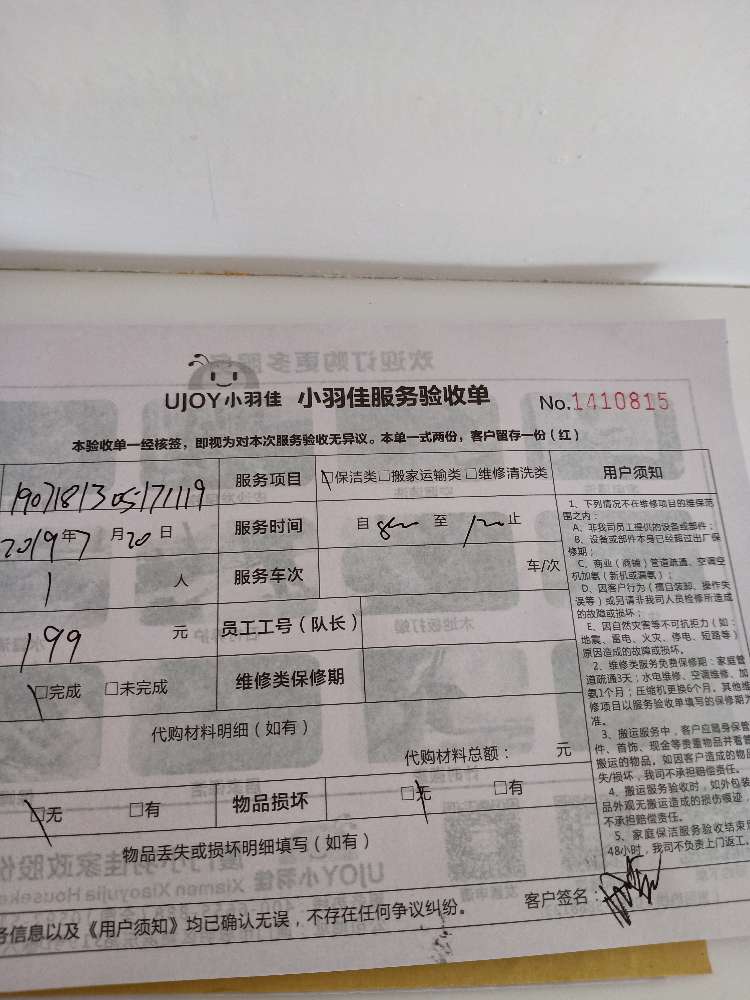 欢迎订购更多服务
UJOY小羽佳 小羽佳服务验收单 No.1410815
本验收单一经核签，即视为对本次服务验收无异议。本单一式两份，客户留存一份（红）
服务项目 □保洁类□搬家运输类□维修清洗类 用户须知
2019年7月20日 服务时间 自 至 止
1 人 服务车次 车/次
199 元 员工工号（队长）
□完成 □未完成 维修类保修期
代购材料明细（如有）
代购材料总额： 元
□无 □有 物品损坏 □无 □有
物品丢失或损坏明细填写（如有）
务信息以及《用户须知》均已确认无误，不存在任何争议纠纷。 客户签名：
1、下列情况不在维修项目的维保范
围之内：
A、非我司员工提供的设备或部件；
B、设备或部件本身已经超过出厂保
修期；
C、商业（商铺）管道疏通、空调空
机加氨（新机或漏氨）；
D、因客户行为（擅自装卸、操作失
误等）或另请非我司人员检修所造成
的故障或损坏；
E、因自然灾害等不可抗拒力（如：
地震、雷电、火灾、停电、短路等）
原因造成的故障或损坏。
2、维修类服务免费保修期：家庭管
道疏通3天；水电维修、空调维修、加
氨1个月；压缩机更换6个月。其他维
修项目以服务验收单填写的保修期为
准。
3、搬运服务中，客户应随身保管
件、首饰、现金等贵重物品并看管
搬运的物品。如因客户造成的物品
失/损坏，我司不承担赔偿责任。
4、搬运服务验收时，如外包装
品外观无搬运造成的损伤痕迹，
不承担赔偿责任。
5、家庭保洁服务验收结束后
48小时，我司不负责上门返工。
UJOY小羽佳
Xiamen Xiaoyujia Houseke